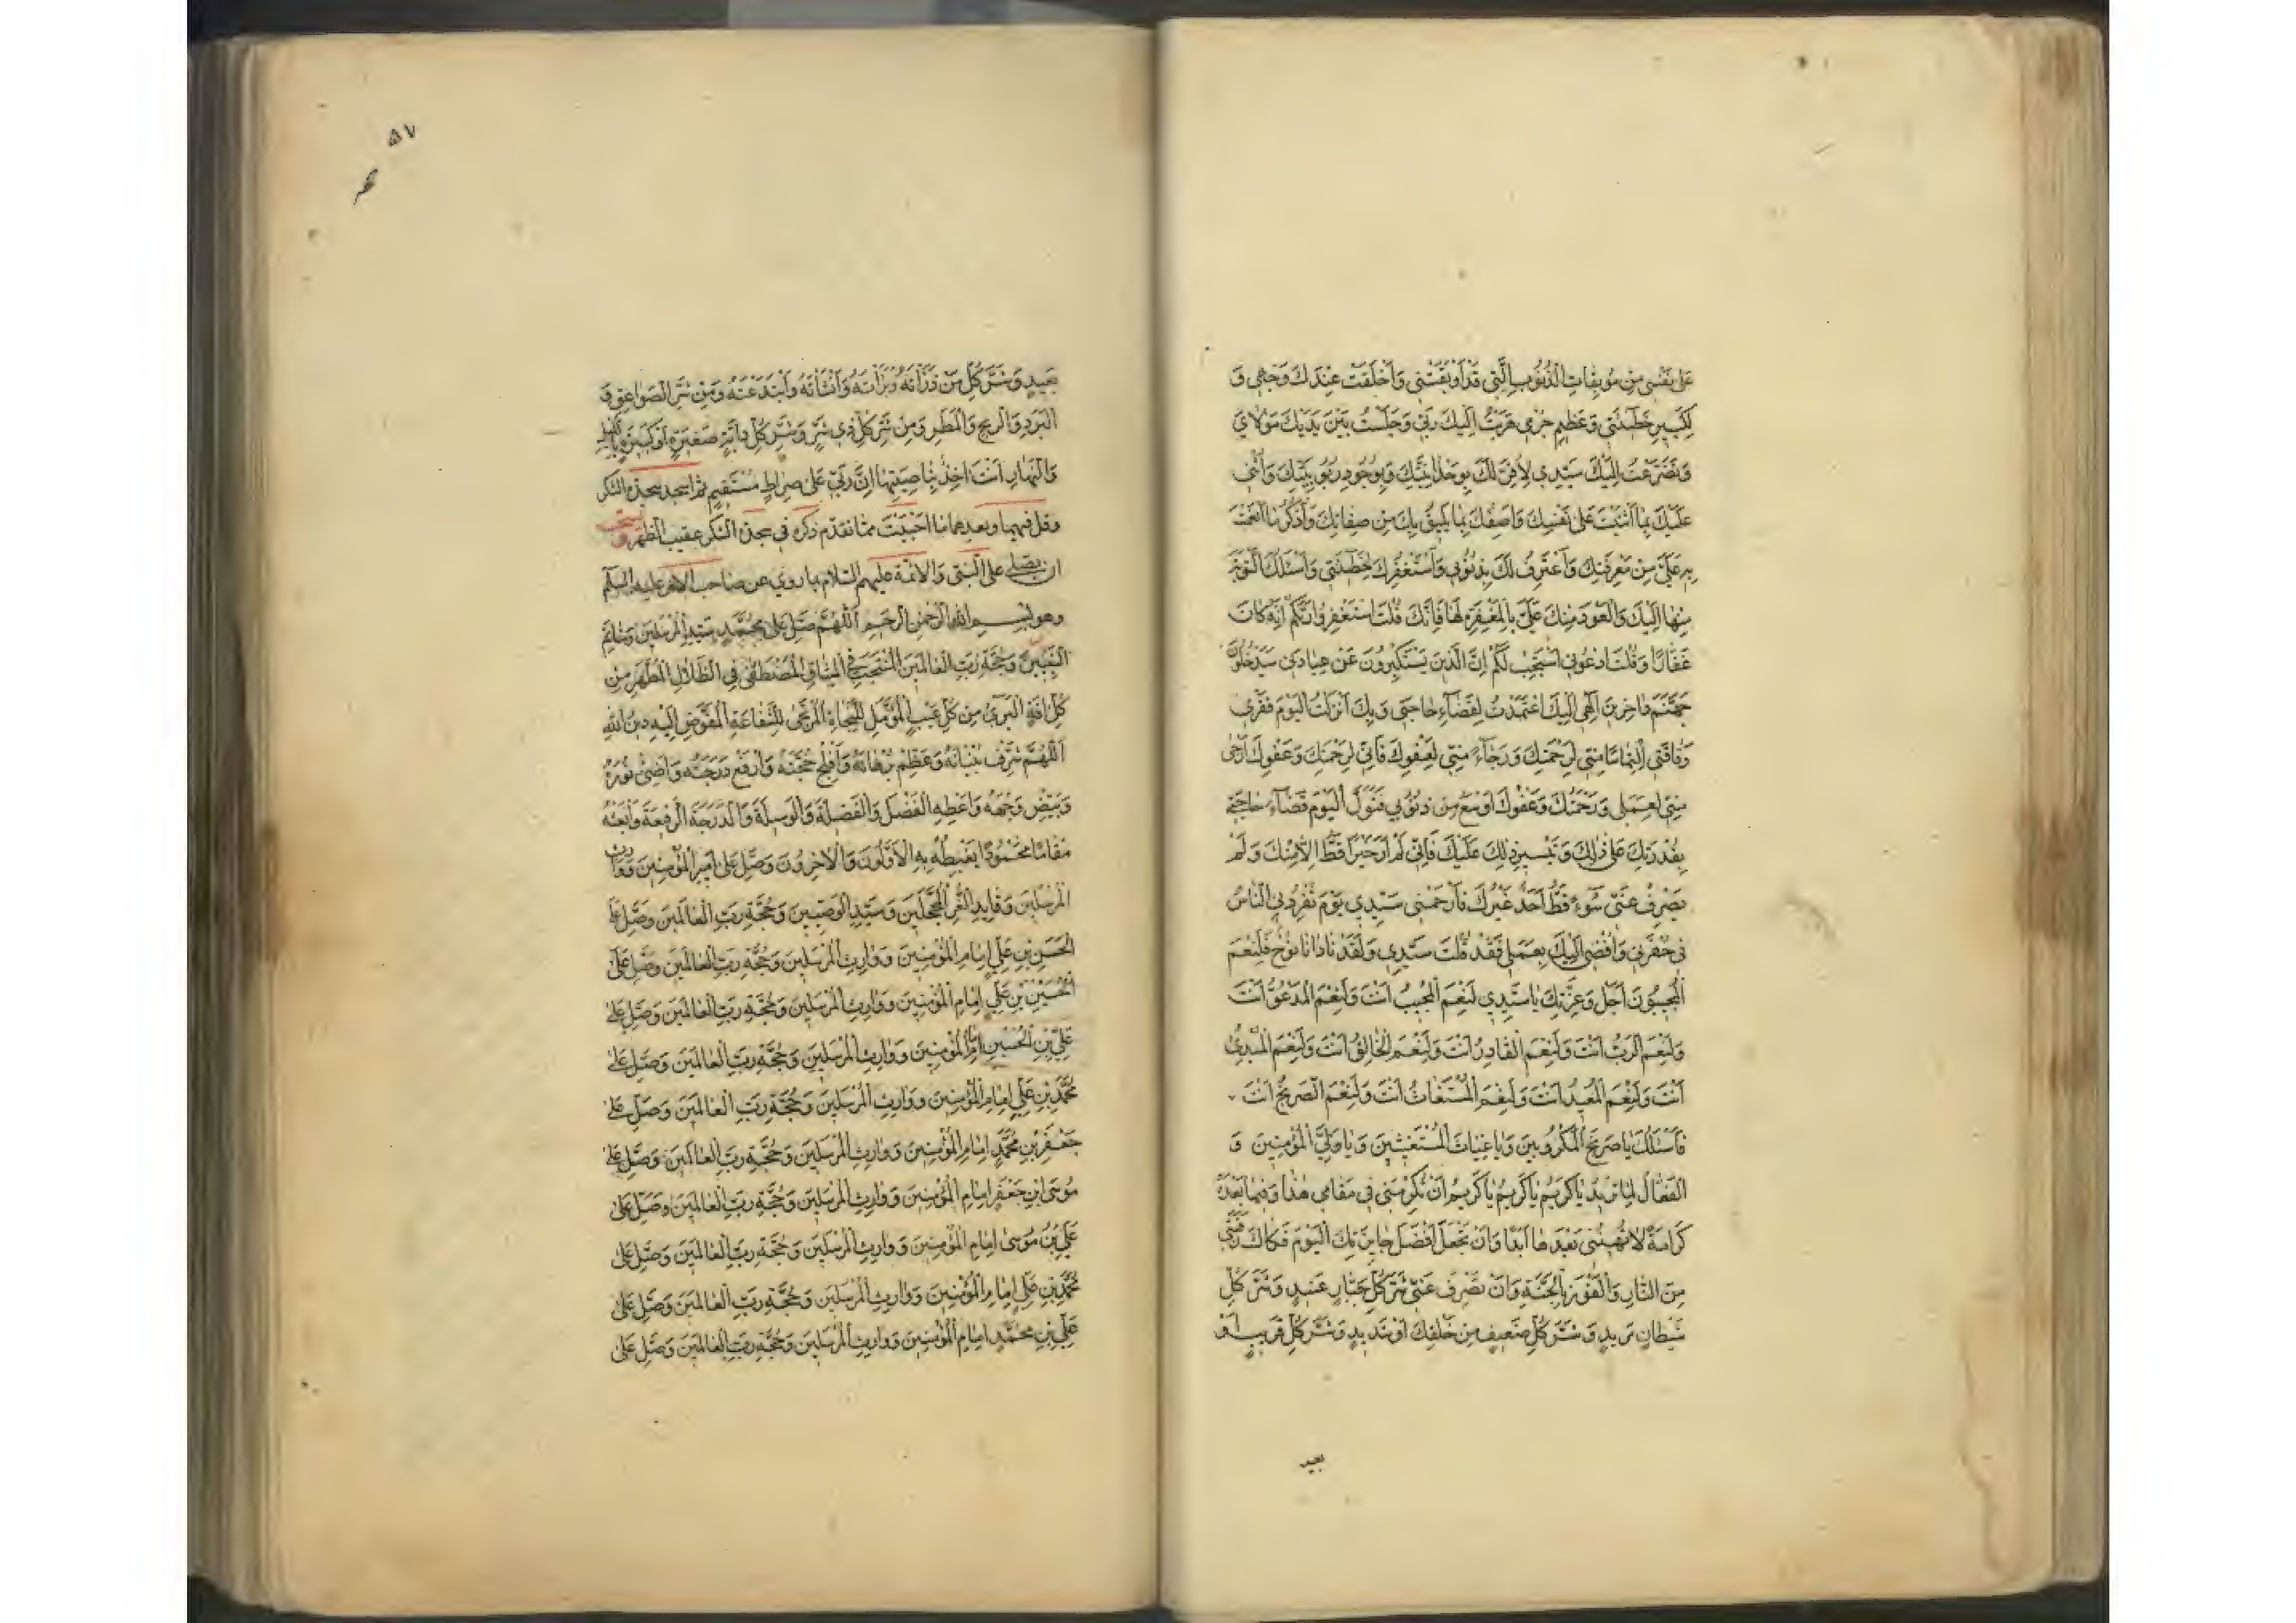 عَلىٰ نَفْسِى مِنْ مُوبِقَاتِ الذُّنُوبِ الَّتِى قَدْ اَوْبَقَتْنِى وَاَخْلَقَتْ عِنْدَكَ وَجْهِى وَ
لِكَبِيرِ خَطِيئَتِى وَعَظِيمِ جُرْمِى هَرَبْتُ اِلَيْكَ رَبِّى وَجَلَسْتُ بَيْنَ يَدَيْكَ مَوْلَايَ
وَتَضَرَّعْتُ اِلَيْكَ سَيِّدِي لِاُقِرَّ لَكَ بِوَحْدَانِيَّتِكَ وَبِوُجُودِ رُبُوبِيَّتِكَ وَاُثْنِى
عَلَيْكَ بِمَا اَثْنَيْتَ عَلىٰ نَفْسِكَ وَاَصِفُكَ بِمَا يَلِيقُ بِكَ مِنْ صِفَاتِكَ وَاَذْكُرُ مَا اَنْعَمْتَ
بِهِ عَلَيَّ مِنْ مَعْرِفَتِكَ وَاَعْتَرِفُ لَكَ بِذُنُوبِي وَاَسْتَغْفِرُكَ لِخَطِيئَتِى وَاَسْئَلُكَ التَّوْبَةَ
مِنْهَا اِلَيْكَ وَالْعَوْدَ مِنْكَ عَلَيَّ بِالْمَغْفِرَةِ لَهَا فَاِنَّكَ قُلْتَ اسْتَغْفِرُوا رَبَّكُمْ اِنَّهُ كَانَ
غَفَّارًا وَقُلْتَ ادْعُونِى اَسْتَجِبْ لَكُمْ اِنَّ الَّذِينَ يَسْتَكْبِرُونَ عَنْ عِبَادَتِى سَيَدْخُلُونَ
جَهَنَّمَ دَاخِرِينَ اِلٰهِى اِلَيْكَ اعْتَمَدْتُ لِقَضَاءِ حَاجَتِى وَبِكَ اَنْزَلْتُ الْيَوْمَ فَقْرِى
وَفَاقَتِى اِلْتِمَاسًا مِنِّى لِرَحْمَتِكَ وَرَجَاءً مِنِّى لِعَفْوِكَ فَاِنِّى لِرَحْمَتِكَ وَعَفْوِكَ اَرْجىٰ
مِنِّى لِعَمَلِى وَرَحْمَتُكَ وَعَفْوُكَ اَوْسَعُ مِنْ ذُنُوبِى فَتَوَلَّ الْيَوْمَ قَضَاءَ حَاجَتِى
بِقُدْرَتِكَ عَلىٰ ذٰلِكَ وَتَيْسِيرِ ذٰلِكَ عَلَيْكَ فَاِنِّى لَمْ اَرَ خَيْرًا قَطُّ اِلَّا مِنْكَ وَلَمْ
يَصْرِفْ عَنِّى سُوءً قَطُّ اَحَدٌ غَيْرُكَ فَارْحَمْنِى سَيِّدِي يَوْمَ يُفْرِدُنِى النَّاسُ
فِى حُفْرَتِى وَاُفْضِى اِلَيْكَ بِعَمَلِى فَقَدْ قُلْتَ سَيِّدِي وَلَقَدْ نَادَانَا نُوحٌ فَلَنِعْمَ
الْمُجِيبُونَ اَجَلْ وَعِزَّتِكَ يَا سَيِّدِي لَنِعْمَ الْمُجِيبُ اَنْتَ وَلَنِعْمَ الْمَدْعُوُّ اَنْتَ
وَلَنِعْمَ الرَّبُّ اَنْتَ وَلَنِعْمَ الْقَادِرُ اَنْتَ وَلَنِعْمَ الْخَالِقُ اَنْتَ وَلَنِعْمَ الْمُبْدِئُ
اَنْتَ وَلَنِعْمَ الْمُعِيدُ اَنْتَ وَلَنِعْمَ الْمُسْتَغَاثُ اَنْتَ وَلَنِعْمَ الصَّرِيخُ اَنْتَ
فَاَسْئَلُكَ يَا صَرِيخَ الْمَكْرُوبِينَ وَيَا غِيَاثَ الْمُسْتَغِيثِينَ وَيَا وَلِيَّ الْمُؤْمِنِينَ وَ
الْفَعَّالُ لِمَا يُرِيدُ يَا كَرِيمُ يَا كَرِيمُ يَا كَرِيمُ اَنْ تُكْرِمَنِى فِى مَقَامِى هٰذَا وَفِيمَا بَعْدَهُ
كَرَامَةً لَا تُهِينُنِى بَعْدَهَا اَبَدًا وَاَنْ تَجْعَلَ اَفْضَلَ جَائِزَتِكَ الْيَوْمَ فَكَاكَ رَقَبَتِى
مِنَ النَّارِ وَالْفَوْزَ بِالْجَنَّةِ وَاَنْ تَصْرِفَ عَنِّى شَرَّ كُلِّ جَبَّارٍ عَنِيدٍ وَشَرَّ كُلِّ
شَيْطَانٍ مَرِيدٍ وَشَرَّ كُلِّ ضَعِيفٍ مِنْ خَلْقِكَ اَوْ شَدِيدٍ وَشَرَّ كُلِّ قَرِيبٍ اَوْ
بعيد
٥٧
بَعِيدٍ وَشَرَّ كُلِّ مَنْ ذَرَأْتَهُ وَبَرَأْتَهُ وَاَنْشَأْتَهُ وَابْتَدَعْتَهُ وَمِنْ شَرِّ الصَّوَاعِقِ وَ
الْبَرَدِ وَالرِّيحِ وَالْمَطَرِ وَمِنْ شَرِّ كُلِّ ذِى شَرٍّ وَشَرِّ كُلِّ دَابَّةٍ صَغِيرَةٍ اَوْ كَبِيرَةٍ بِاللَّيْلِ
وَالنَّهَارِ اَنْتَ اٰخِذٌ بِنَاصِيَتِهَا اِنَّ رَبِّى عَلىٰ صِرَاطٍ مُسْتَقِيمٍ ثم اسجد سجدة الشكر
وقل فيهما وبعدهما ما احببت مما تقدم ذكره فى سجدة الشكر عقيب الظهر ويستحب
ان يصلى على النبى والائمة عليهم السلام بما روى عن صاحب الامر عليه السلم
وهو بسم الله الرحمن الرحيم اَللّٰهُمَّ صَلِّ عَلىٰ مُحَمَّدٍ سَيِّدِ الْمُرْسَلِينَ وَخَاتَمِ
النَّبِيِّينَ وَحُجَّةِ رَبِّ الْعَالَمِينَ الْمُنْتَجَبِ فِى الْمِيثَاقِ الْمُصْطَفىٰ فِى الظِّلَالِ الْمُطَهَّرِ مِنْ
كُلِّ اٰفَةٍ الْبَرِىءِ مِنْ كُلِّ عَيْبٍ الْمُؤَمَّلِ لِلنَّجَاةِ الْمُرْتَجىٰ لِلشَّفَاعَةِ الْمُفَوَّضِ اِلَيْهِ دِينُ اللّٰهِ
اَللّٰهُمَّ شَرِّفْ بُنْيَانَهُ وَعَظِّمْ بُرْهَانَهُ وَاَفْلِجْ حُجَّتَهُ وَارْفَعْ دَرَجَتَهُ وَاَضِئْ نُورَهُ
وَبَيِّضْ وَجْهَهُ وَاَعْطِهِ الْفَضْلَ وَالْفَضِيلَةَ وَالْوَسِيلَةَ وَالدَّرَجَةَ الرَّفِيعَةَ وَابْعَثْهُ
مَقَامًا مَحْمُودًا يَغْبِطُهُ بِهِ الْاَوَّلُونَ وَالْاٰخِرُونَ وَصَلِّ عَلىٰ اَمِيرِ الْمُؤْمِنِينَ وَوَارِثِ
الْمُرْسَلِينَ وَقَائِدِ الْغُرِّ الْمُحَجَّلِينَ وَسَيِّدِ الْوَصِيِّينَ وَحُجَّةِ رَبِّ الْعَالَمِينَ وَصَلِّ عَلَى
الْحَسَنِ بْنِ عَلِيٍّ اِمَامِ الْمُؤْمِنِينَ وَوَارِثِ الْمُرْسَلِينَ وَحُجَّةِ رَبِّ الْعَالَمِينَ وَصَلِّ عَلَى
الْحُسَيْنِ بْنِ عَلِيٍّ اِمَامِ الْمُؤْمِنِينَ وَوَارِثِ الْمُرْسَلِينَ وَحُجَّةِ رَبِّ الْعَالَمِينَ وَصَلِّ عَلىٰ
عَلِيِّ بْنِ الْحُسَيْنِ اِمَامِ الْمُؤْمِنِينَ وَوَارِثِ الْمُرْسَلِينَ وَحُجَّةِ رَبِّ الْعَالَمِينَ وَصَلِّ عَلىٰ
مُحَمَّدِ بْنِ عَلِيٍّ اِمَامِ الْمُؤْمِنِينَ وَوَارِثِ الْمُرْسَلِينَ وَحُجَّةِ رَبِّ الْعَالَمِينَ وَصَلِّ عَلىٰ
جَعْفَرِ بْنِ مُحَمَّدٍ اِمَامِ الْمُؤْمِنِينَ وَوَارِثِ الْمُرْسَلِينَ وَحُجَّةِ رَبِّ الْعَالَمِينَ وَصَلِّ عَلىٰ
مُوسَى ابْنِ جَعْفَرٍ اِمَامِ الْمُؤْمِنِينَ وَوَارِثِ الْمُرْسَلِينَ وَحُجَّةِ رَبِّ الْعَالَمِينَ وَصَلِّ عَلىٰ
عَلِيِّ بْنِ مُوسىٰ اِمَامِ الْمُؤْمِنِينَ وَوَارِثِ الْمُرْسَلِينَ وَحُجَّةِ رَبِّ الْعَالَمِينَ وَصَلِّ عَلىٰ
مُحَمَّدِ بْنِ عَلِيٍّ اِمَامِ الْمُؤْمِنِينَ وَوَارِثِ الْمُرْسَلِينَ وَحُجَّةِ رَبِّ الْعَالَمِينَ وَصَلِّ عَلىٰ
عَلِيِّ بْنِ مُحَمَّدٍ اِمَامِ الْمُؤْمِنِينَ وَوَارِثِ الْمُرْسَلِينَ وَحُجَّةِ رَبِّ الْعَالَمِينَ وَصَلِّ عَلىٰ